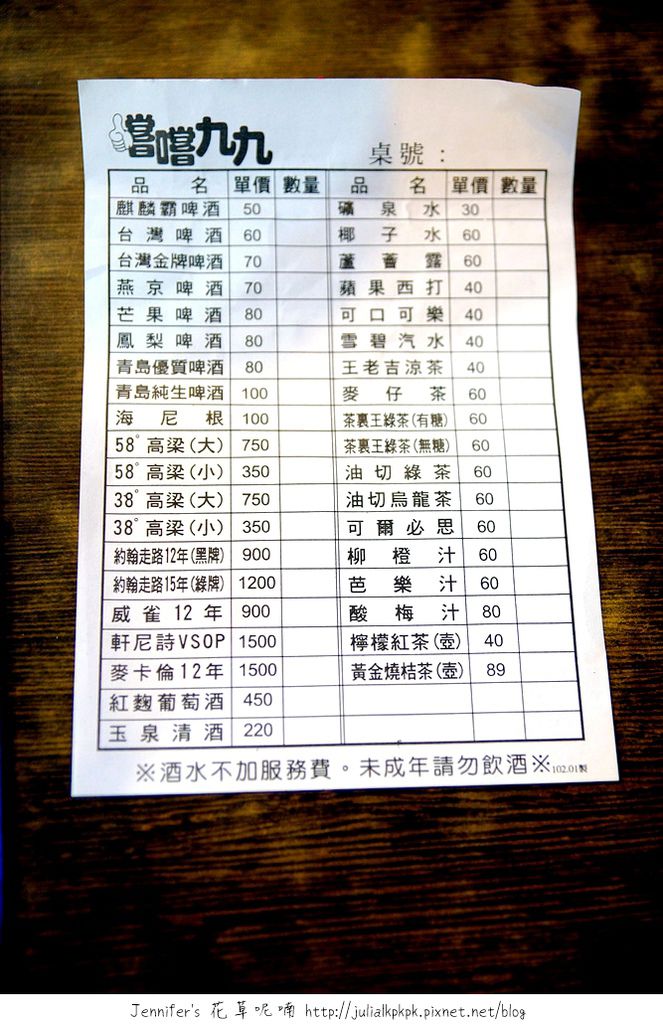 嚐嚐九九
桌號：
品名 單價 數量 品名 單價 數量
麒麟霸啤酒 50 礦泉水 30
台灣啤酒 60 椰子水 60
台灣金牌啤酒 70 蘆薈露 60
燕京啤酒 70 蘋果西打 40
芒果啤酒 80 可口可樂 40
鳳梨啤酒 80 雪碧汽水 40
青島優質啤酒 80 王老吉涼茶 40
青島純生啤酒 100 麥仔茶 60
海尼根 100 茶裏王綠茶(有糖) 60
58°高梁(大) 750 茶裏王綠茶(無糖) 60
58°高梁(小) 350 油切綠茶 60
38°高梁(大) 750 油切烏龍茶 60
38°高梁(小) 350 可爾必思 60
約翰走路12年(黑牌) 900 柳橙汁 60
約翰走路15年(綠牌) 1200 芭樂汁 60
威雀12年 900 酸梅汁 80
軒尼詩VSOP 1500 檸檬紅茶(壺) 40
麥卡倫12年 1500 黃金燒桔茶(壺) 89
紅麴葡萄酒 450
玉泉清酒 220
※酒水不加服務費。未成年請勿飲酒※102.01製
Jennifer's 花草呢喃 http://julialkpkpk.pixnet.net/blog